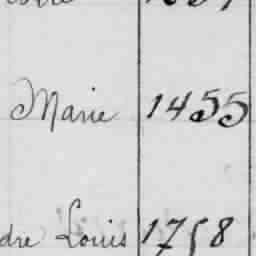 Marie 1455
dre Louis 1758